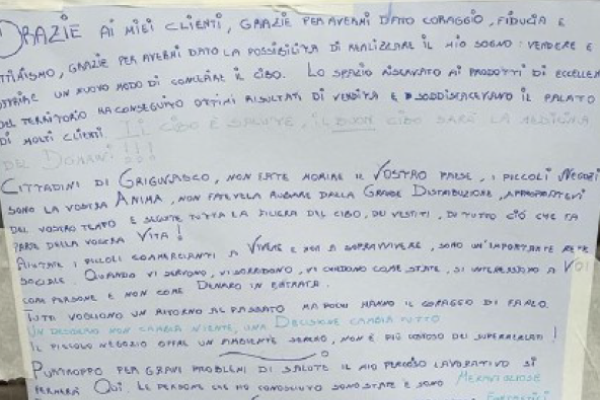 GRAZIE AI MIEI CLIENTI, GRAZIE PER AVERMI DATO CORAGGIO, FIDUCIA E
OTTIMISMO, GRAZIE PER AVERMI DATO LA POSSIBILITÀ DI REALIZZARE IL MIO SOGNO: VENDERE E
UN NUOVO MODO DI COMPRARE IL CIBO. LO SPAZIO RISERVATO AI PRODOTTI DI ECCELLEN
DEL TERRITORIO HA CONSEGUITO OTTIMI RISULTATI DI VENDITA E SODDISFACEVANO IL PALATO
DI MOLTI CLIENTI. IL CIBO È SALUTE, IL BUON CIBO SARÀ LA MEDICINA
DEL DOMANI!!!
CITTADINI DI GRIGNASCO, NON FATE MORIRE IL VOSTRO PAESE, I PICCOLI NEGOZI
SONO LA VOSTRA ANIMA, NON FATEVELA RUBARE DALLA GRANDE DISTRIBUZIONE, APPROPRIATEVI
DEL VOSTRO TEMPO E SEGUITE TUTTA LA FILIERA DEL CIBO, DEI VESTITI, DI TUTTO CIÒ CHE FA
PARTE DELLA VOSTRA VITA!
AIUTATE I PICCOLI COMMERCIANTI A VIVERE E NON A SOPRAVVIVERE, SONO UN'IMPORTANTE RETE
SOCIALE. QUANDO VI SERVONO, VI SORRIDONO, VI CHIEDONO COME STATE, SI INTERESSANO A VOI
COME PERSONE E NON COME DENARO IN ENTRATA.
TUTTI VOGLIONO UN RITORNO AL PASSATO MA POCHI HANNO IL CORAGGIO DI FARLO.
UN DESIDERIO NON CAMBIA NIENTE, UNA DECISIONE CAMBIA TUTTO
IL PICCOLO NEGOZIO OFFRE UN AMBIENTE SERENO, NON È PIÙ COSTOSO DEI SUPERMERCATI!
PURTROPPO PER GRAVI PROBLEMI DI SALUTE IL MIO PERCORSO LAVORATIVO SI
FERMERÀ QUI. LE PERSONE CHE HO CONOSCIUTO SONO STATE E SONO MERAVIGLIOSE